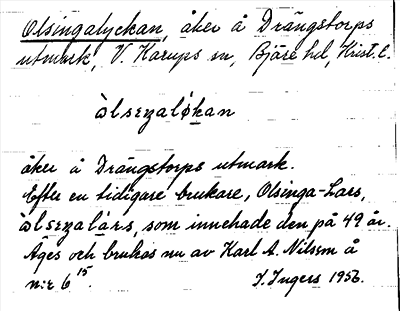 Olsingalyckan, åker å Drängstorps
utmark, V. Karups sn, Bjäre hd, Krist. l.
àlsɛŋaløkan
åker å Drängstorps utmark.
Efter en tidigare brukare, Olsinga-Lars,
àlsɛŋalárs, som innehade den på 49 år.
Äges och brukas nu av Karl A. Nilsson å
n:r 6¹⁵.
I. Ingers 1956.